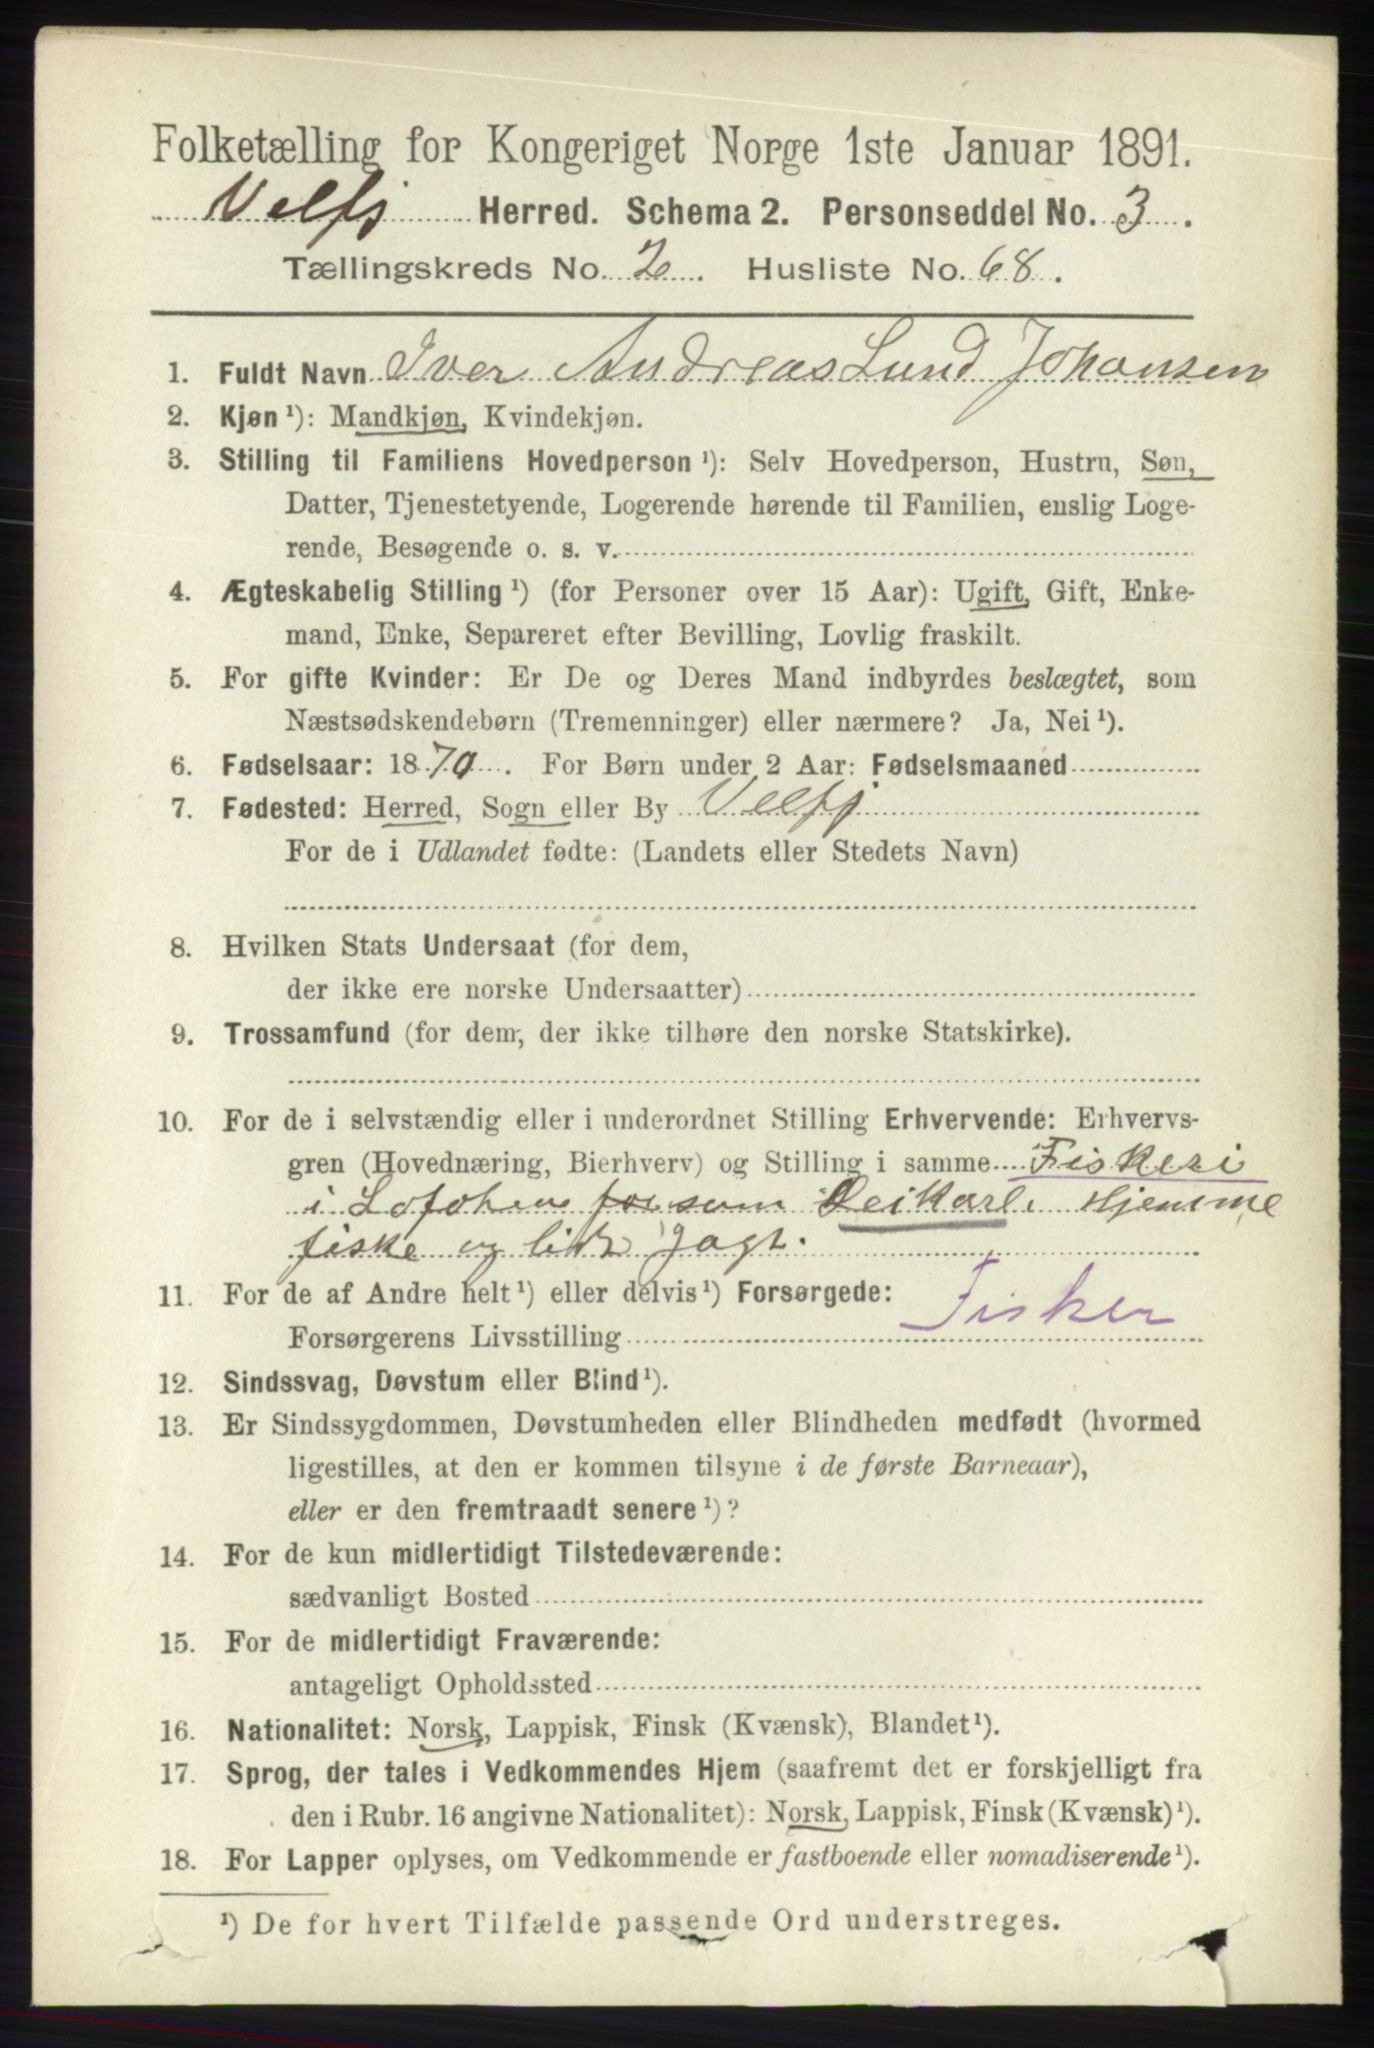 Folketælling for Kongeriget Norge 1ste Januar 1891.
Velfj Herred. Schema 2. Personseddel No. 3.
Tællingskreds No. 2. Husliste No. 68.
1. Fuldt Navn Iver Andreas Lund Johansen
2. Kjøn¹): Mandkjøn, Kvindekjøn.
3. Stilling til Familiens Hovedperson¹): Selv Hovedperson, Hustru, Søn,
Datter, Tjenestetyende, Logerende hørende til Familien, enslig Loge-
rende, Besøgende o. s. v.
4. Ægteskabelig Stilling¹) (for Personer over 15 Aar): Ugift, Gift, Enke-
mand, Enke, Separeret efter Bevilling, Lovlig fraskilt.
5. For gifte Kvinder: Er De og Deres Mand indbyrdes beslægtet, som
Næstsødskendebørn (Tremenninger) eller nærmere? Ja, Nei¹).
6. Fødselsaar: 1870. For Børn under 2 Aar: Fødselsmaaned
7. Fødested: Herred, Sogn eller By Velfj
For de i Udlandet fødte: (Landets eller Stedets Navn)
8. Hvilken Stats Undersaat (for dem,
der ikke ere norske Undersaatter)
9. Trossamfund (for dem, der ikke tilhøre den norske Statskirke).
10. For de i selvstændig eller i underordnet Stilling Erhvervende: Erhvervs-
gren (Hovednæring, Bierhverv) og Stilling i samme Fiskeri
i Lofoten for som Leikarl. Hjemme
fiske og lidt Jagt.
11. For de af Andre helt¹) eller delvis¹) Forsørgede: Fisker
Forsørgerens Livsstilling
12. Sindssvag, Døvstum eller Blind¹).
13. Er Sindssygdommen, Døvstumheden eller Blindheden medfødt (hvormed
ligestilles, at den er kommen tilsyne i de første Barneaar),
eller er den fremtraadt senere¹)?
14. For de kun midlertidigt Tilstedeværende:
sædvanligt Bosted
15. For de midlertidigt Fraværende:
antageligt Opholdssted
16. Nationalitet: Norsk, Lappisk, Finsk (Kvænsk), Blandet¹).
17. Sprog, der tales i Vedkommendes Hjem (saafremt det er forskjelligt fra
den i Rubr. 16 angivne Nationalitet): Norsk, Lappisk, Finsk (Kvænsk)¹).
18. For Lapper oplyses, om Vedkommende er fastboende eller nomadiserende¹).
¹) De for hvert Tilfælde passende Ord understreges.